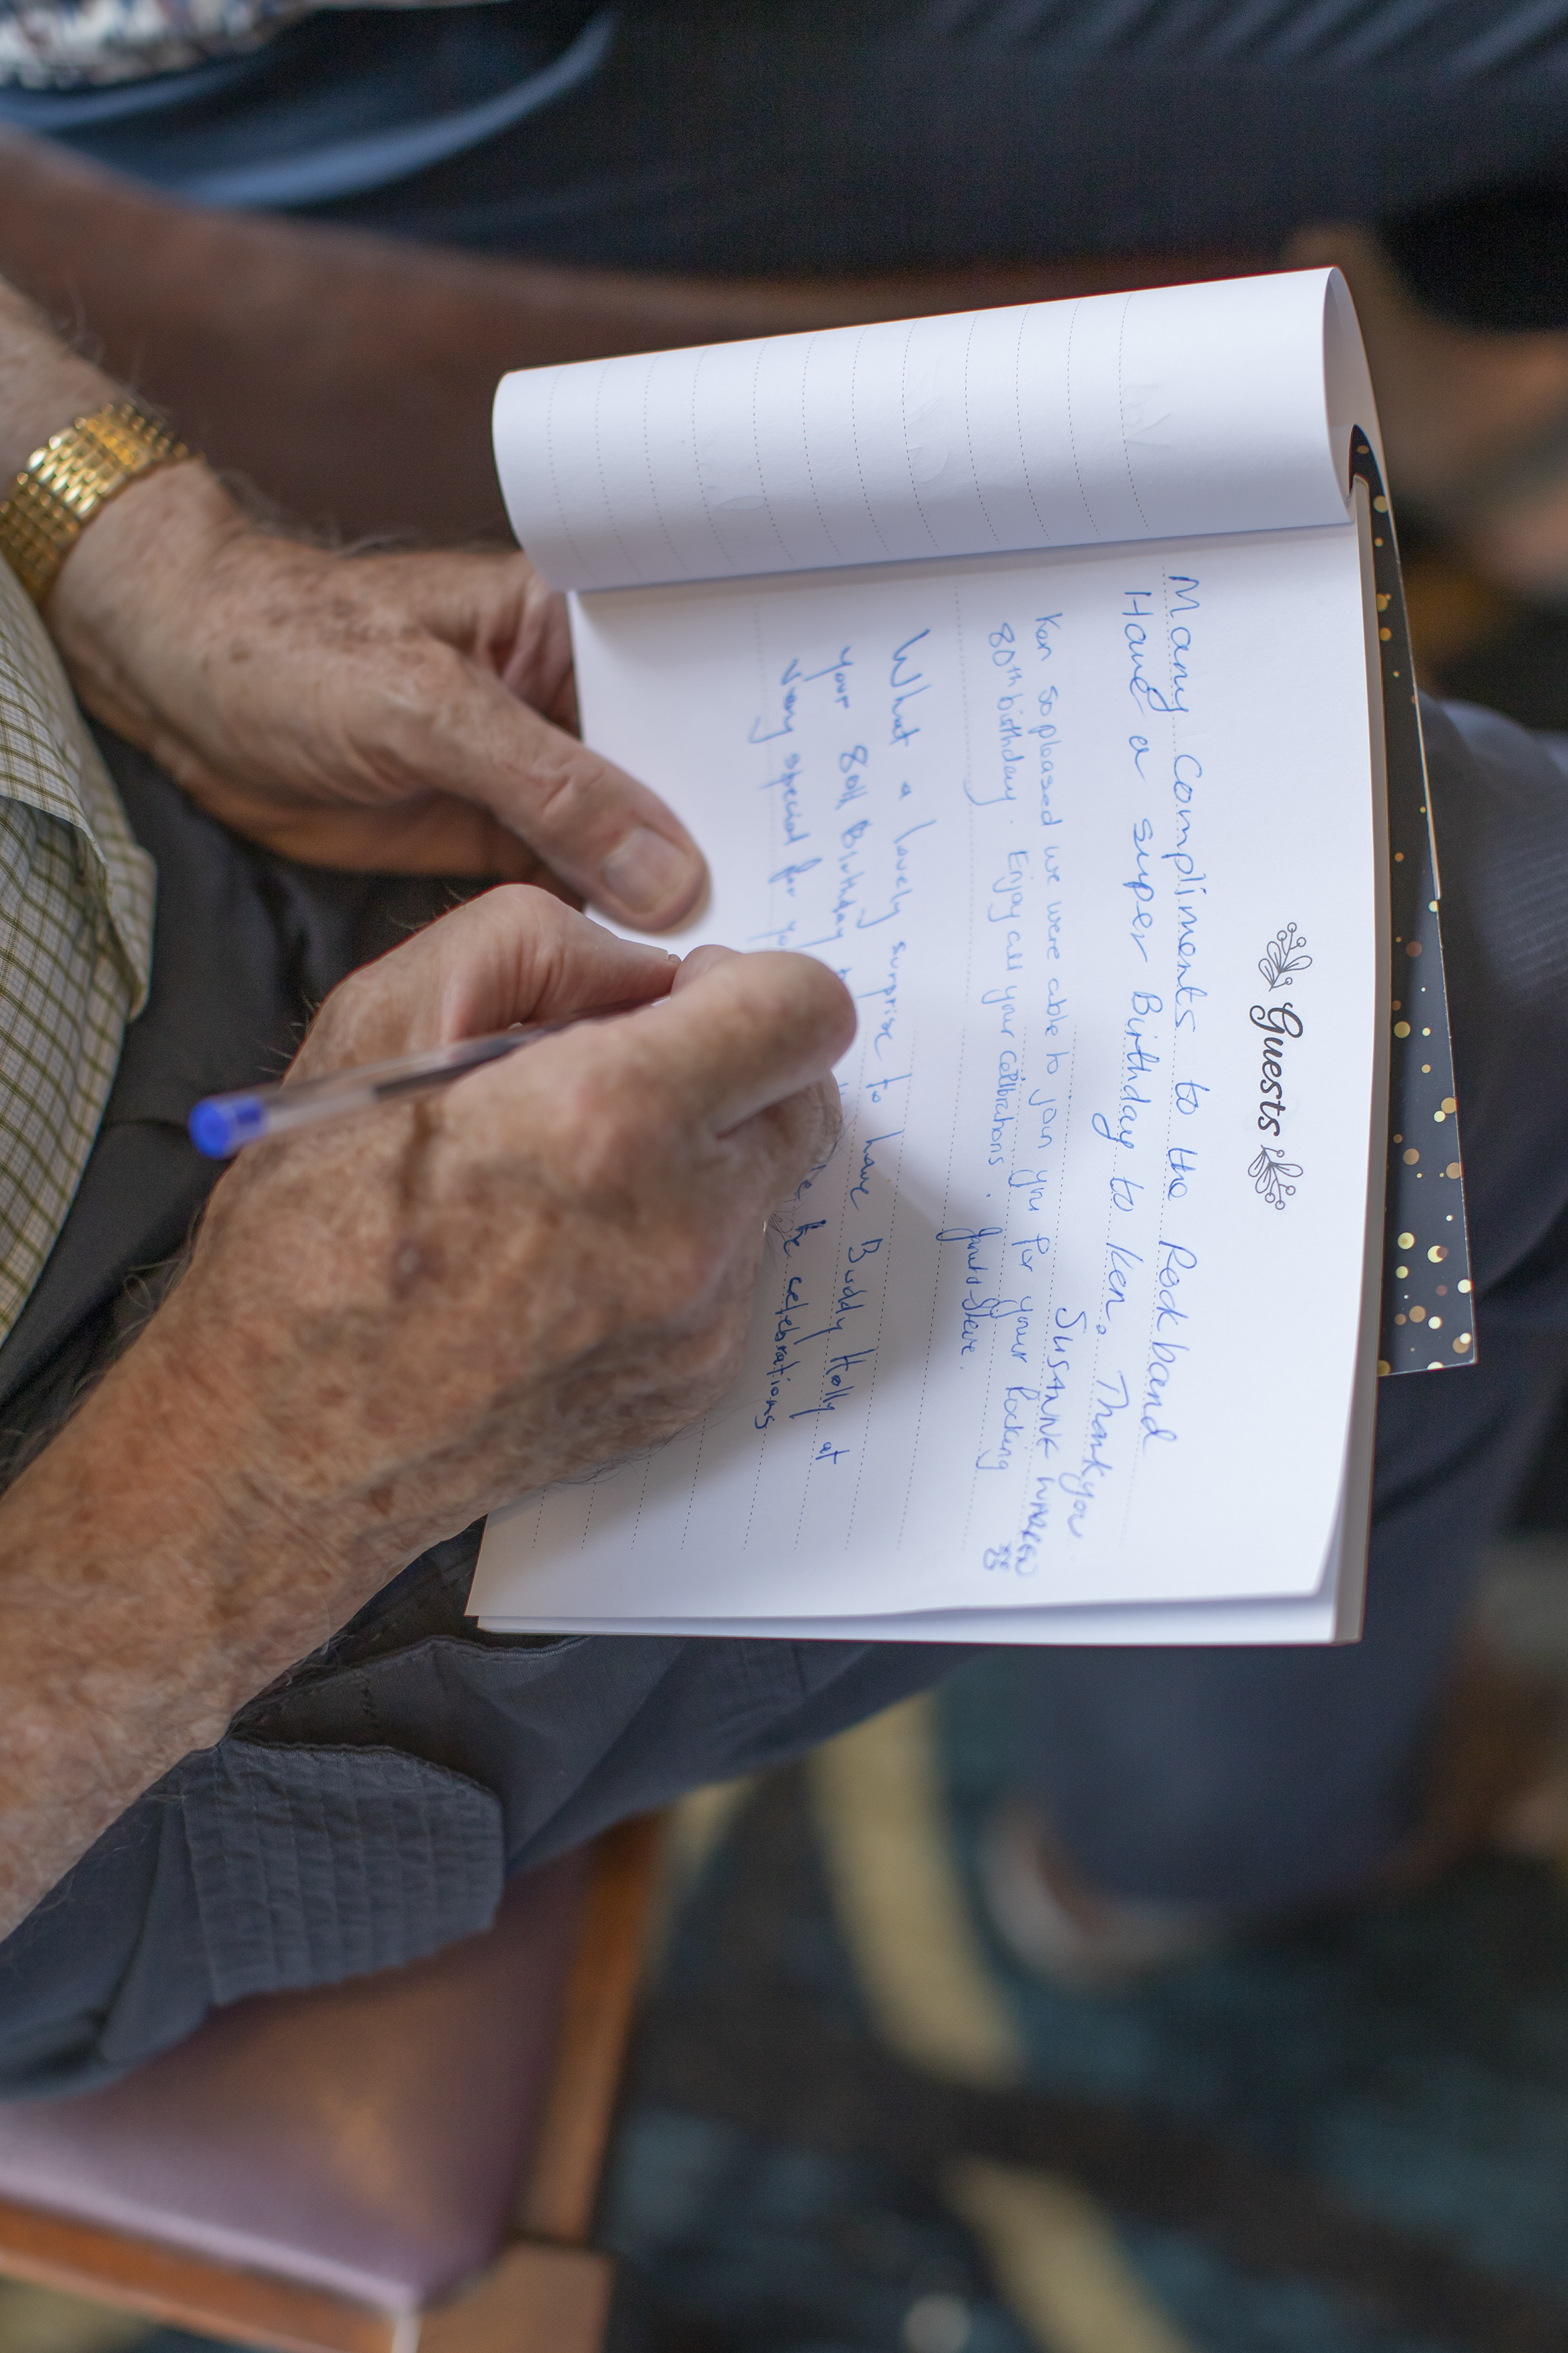 Guests
Many Compliments to the Rock band
Have a super Birthday to Ken. Thankyou
SUSANNE WARREN
Ken so pleased we were able to join you for your Rocking
80th birthday. Enjoy all your celibrations. Steve.
What a lovely surprise to have Buddy Holly at
your 80th Birthday
very special for celebrations